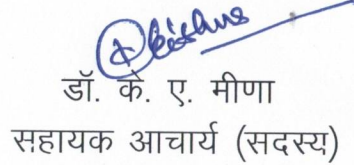 डॉ. के. ए. मीणा
सहायक आचार्य (सदस्य)